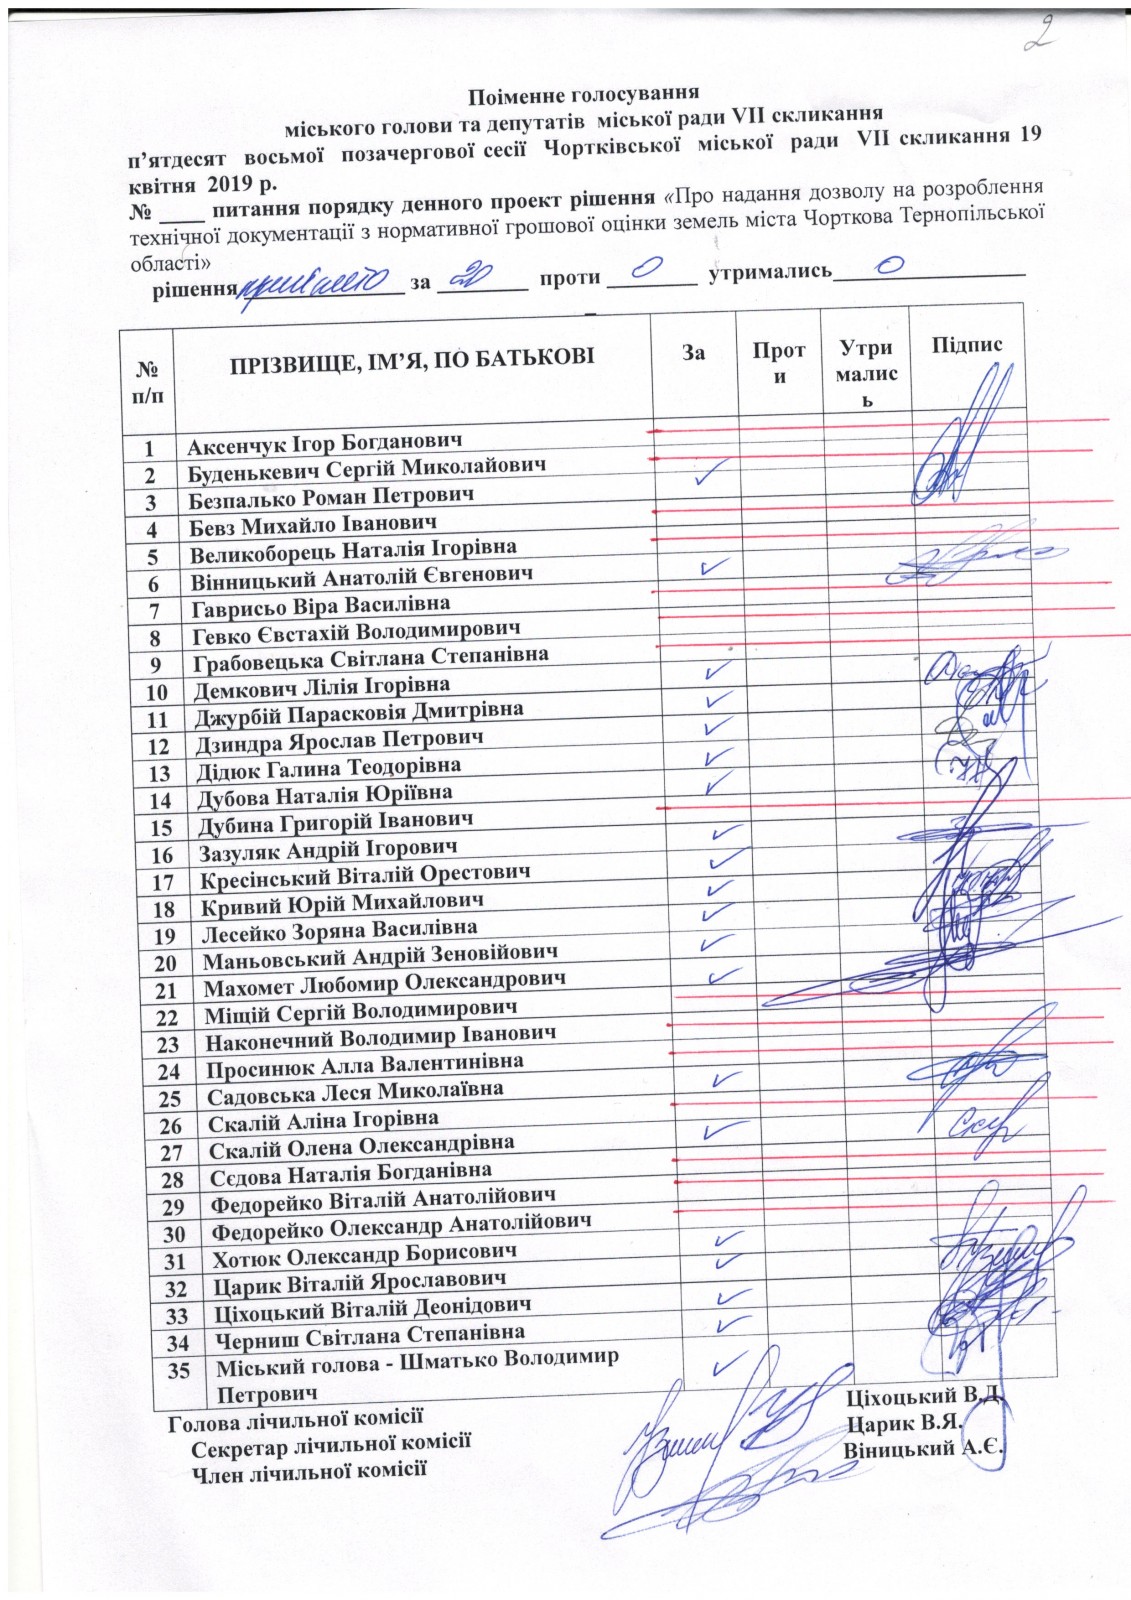 2
Поіменне голосування
міського голови та депутатів міської ради VII скликання
п’ятдесят восьмої позачергової сесії Чортківської міської ради VII скликання 19
квітня 2019 р.
№ ____ питання порядку денного проект рішення «Про надання дозволу на розроблення
технічної документації з нормативної грошової оцінки земель міста Чорткова Тернопільської
області»
рішення прийнято за 20 проти 0 утримались 0
№ п/п ПРІЗВИЩЕ, ІМ’Я, ПО БАТЬКОВІ За Проти Утрималис
ь Підпис
1 Аксенчук Ігор Богданович
2 Буденькевич Сергій Миколайович
3 Безпалько Роман Петрович ✓
4 Бевз Михайло Іванович
5 Великоборець Наталія Ігорівна
6 Вінницький Анатолій Євгенович ✓
7 Гаврисьо Віра Василівна
8 Гевко Євстахій Володимирович
9 Грабовецька Світлана Степанівна
10 Демкович Лілія Ігорівна ✓
11 Джурбій Парасковія Дмитрівна ✓
12 Дзиндра Ярослав Петрович ✓
13 Дідюк Галина Теодорівна ✓
14 Дубова Наталія Юріївна ✓
15 Дубина Григорій Іванович
16 Зазуляк Андрій Ігорович ✓
17 Кресінський Віталій Орестович ✓
18 Кривий Юрій Михайлович ✓
19 Лесейко Зоряна Василівна ✓
20 Маньовський Андрій Зеновійович ✓
21 Махомет Любомир Олександрович ✓
22 Міщій Сергій Володимирович
23 Наконечний Володимир Іванович
24 Просинюк Алла Валентинівна
25 Садовська Леся Миколаївна ✓
26 Скалій Аліна Ігорівна
27 Скалій Олена Олександрівна ✓
28 Сєдова Наталія Богданівна
29 Федорейко Віталій Анатолійович
30 Федорейко Олександр Анатолійович
31 Хотюк Олександр Борисович ✓
32 Царик Віталій Ярославович ✓
33 Ціхоцький Віталій Деонідович ✓
34 Черниш Світлана Степанівна ✓
35 Міський голова - Шматько Володимир
Петрович ✓
Голова лічильної комісії Ціхоцький В.Д.
Секретар лічильної комісії Царик В.Я.
Член лічильної комісії Віницький А.Є.